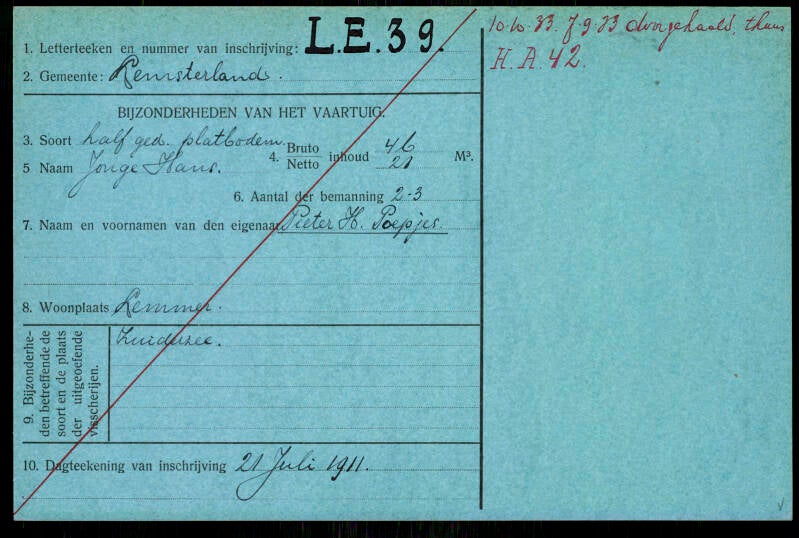 1. Letterteeken en nummer van inschrijving: L.E.39.
2. Gemeente: Lemsterland.
BIJZONDERHEDEN VAN HET VAARTUIG.
3. Soort half ged. platbodem.
4. Bruto Netto inhoud 46 21 M³.
5 Naam Jonge Hans.
6. Aantal der bemanning 2-3
7. Naam en voornamen van den eigenaar Pieter H. Poepjes.
8. Woonplaats Lemmer.
9. Bijzonderhe-
den betreffende de
soort en de plaats
der uitgeoefende
visscherijen.
Zuiderzee.
10. Dagteekening van inschrijving 21 Juli 1911.
10.10.33. J 9.33 doorgehaald, thans
H.A.42.